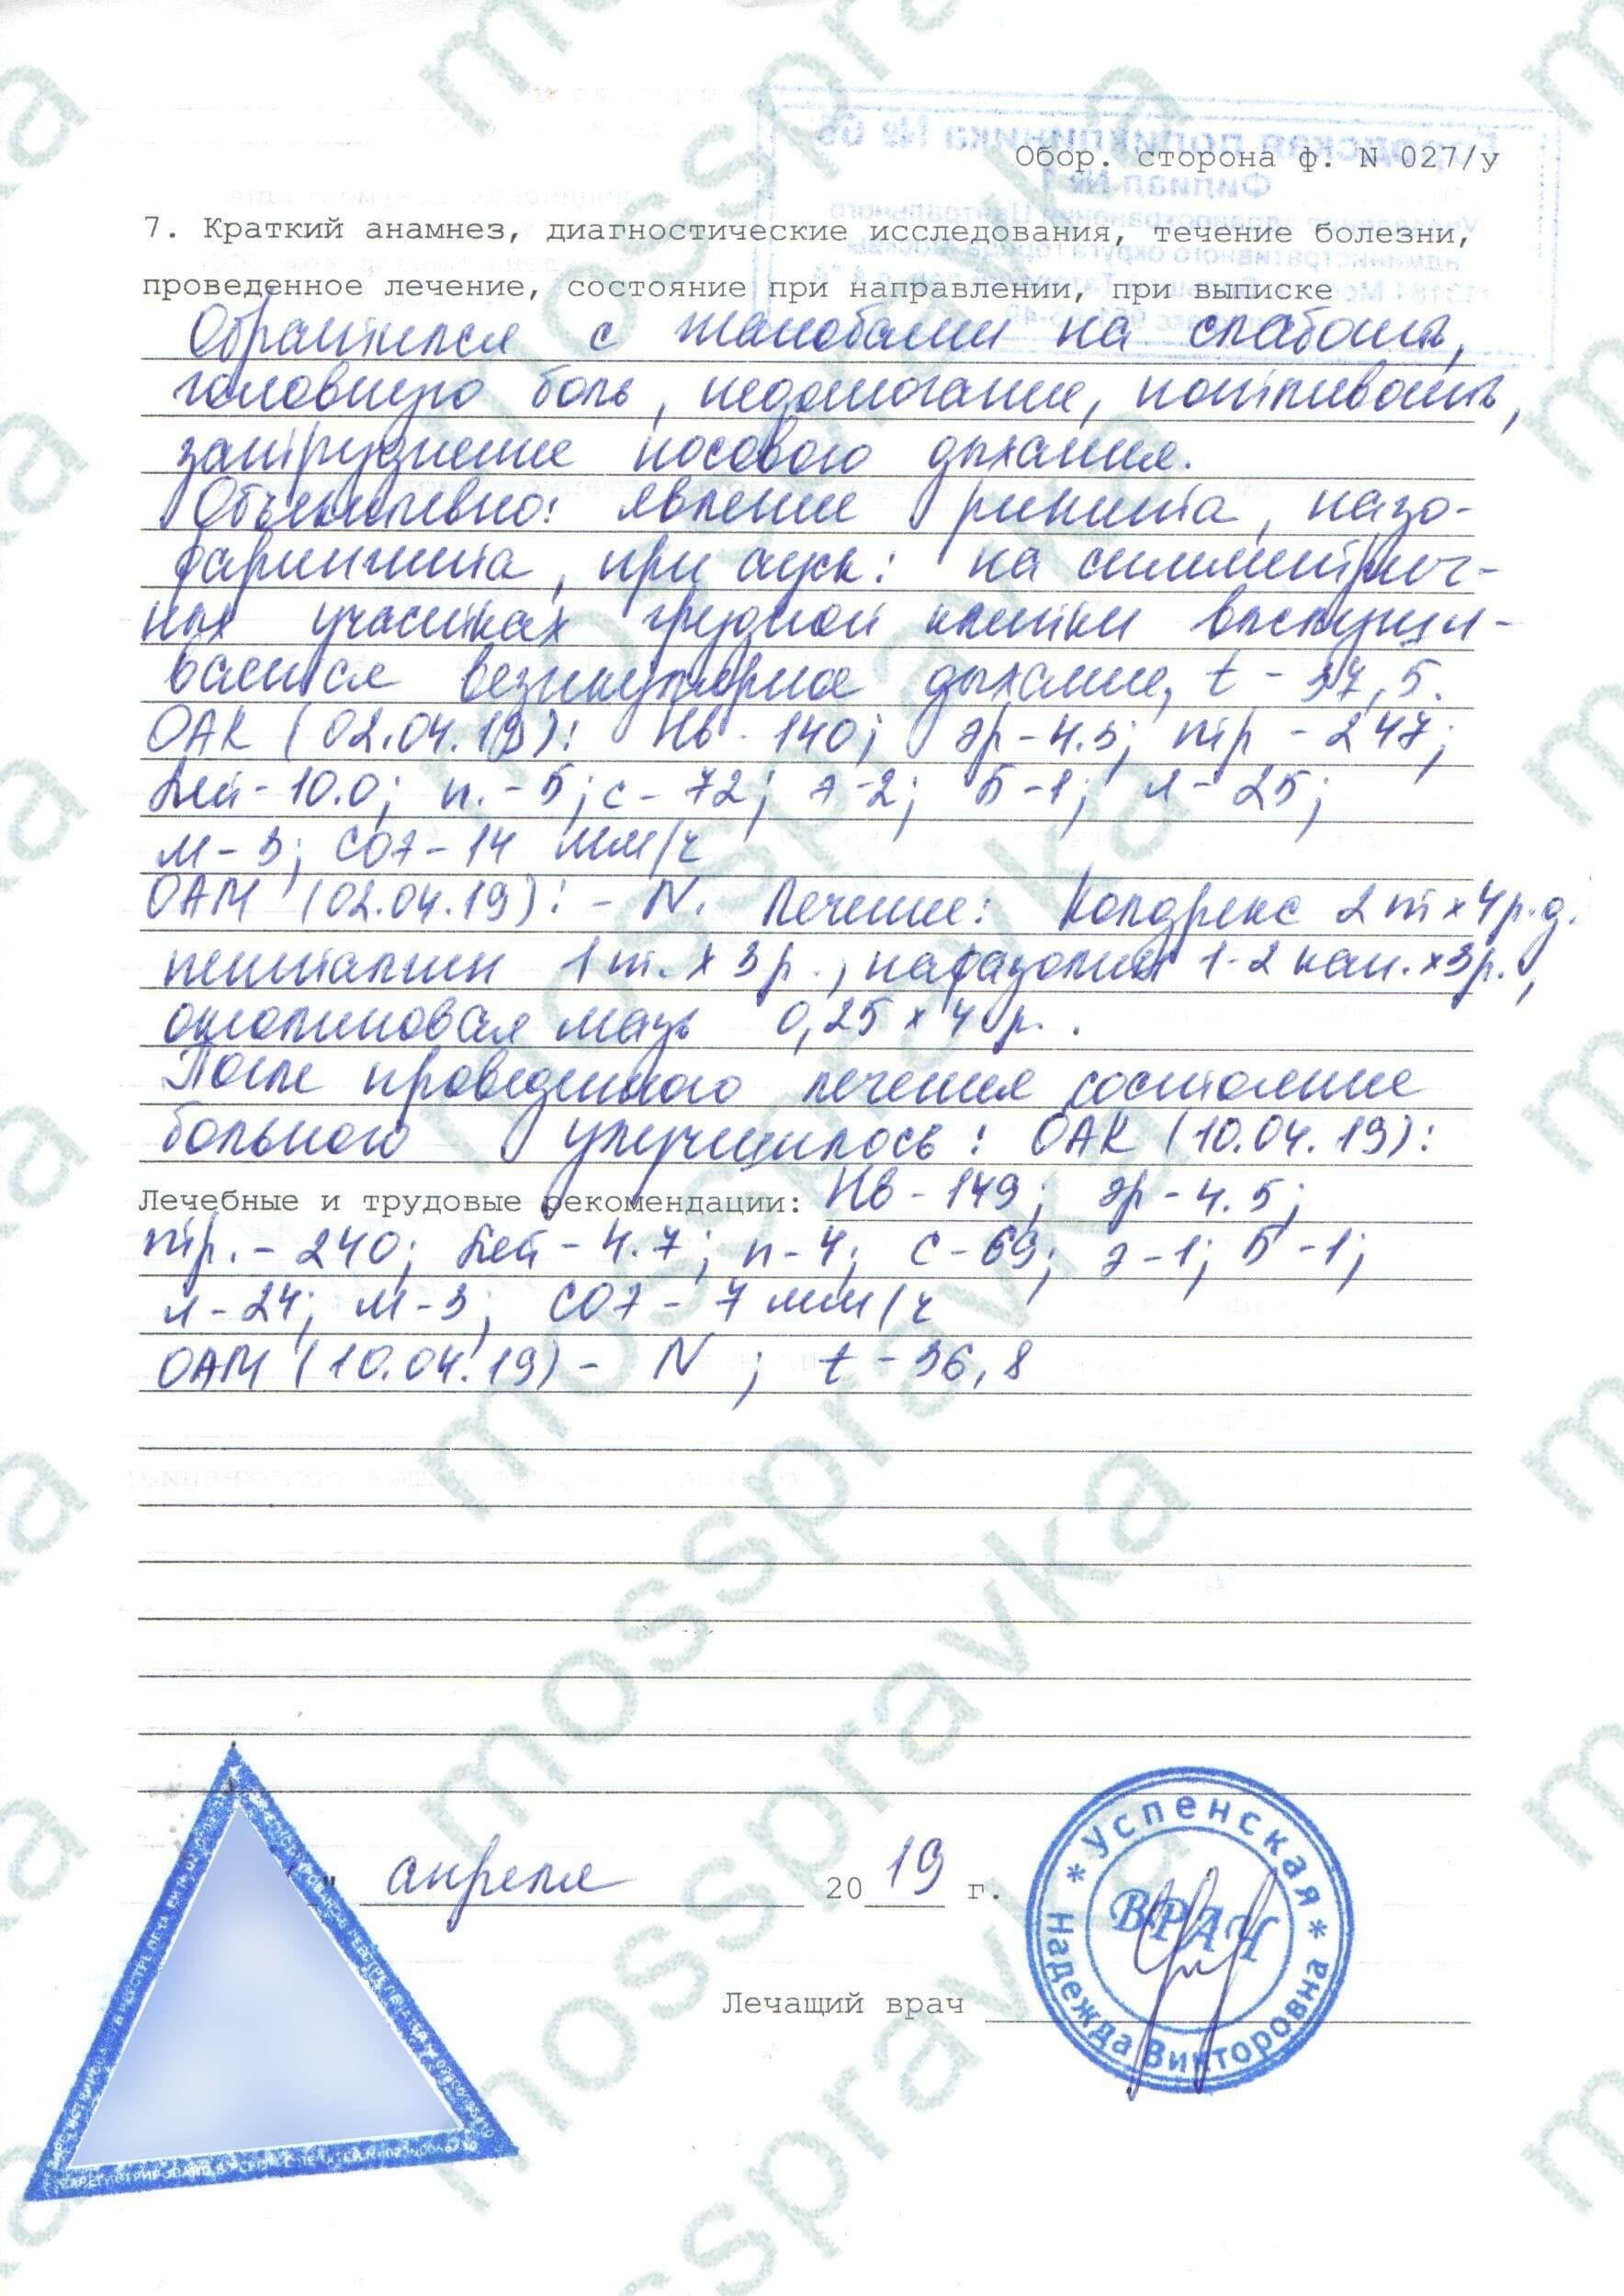 Обор. сторона ф. N 027/у
7. Краткий анамнез, диагностические исследования, течение болезни,
проведенное лечение, состояние при направлении, при выписке
Обратился с жалобами на слабость,
головную боль, недомогание, потливость,
затруднение носового дыхания.
Объективно: явление ринита, назо-
фарингита, при ауск. : на симметрич-
ных участках грудной клетки выслуши-
вается везикулярное дыхание, t - 37,5.
ОАК (02.04.19): Нв - 140; эр - 4.5; тр - 247;
Лей - 10.0; п. - 5; с - 72; э - 2; Б - 1; л - 25;
м - 3; СОЭ - 14 мм/ч
ОАМ (02.04.19): - N. Лечение: Колдрекс 2 т х 4 р.д.
пенталгин 1 т. х 3 р., нафазолин 1-2 кап. х 3р.,
оксолиновая мазь 0,25 х 4 р. .
После проведенного лечения состояние
больного улучшилось : ОАК (10.04.19):
Лечебные и трудовые рекомендации: Нв - 149; эр - 4.5;
тр. - 240; Лей - 4.7; п - 4; с - 69; э - 1; Б - 1;
л - 24; м - 3; СОЭ - 7 мм/ч
ОАМ (10.04.19) - N ; t - 36,8
" апреля 2019 г.
Лечащий врач
* Успенская * Надежда Викторовна
ВРАЧ
mosspravka